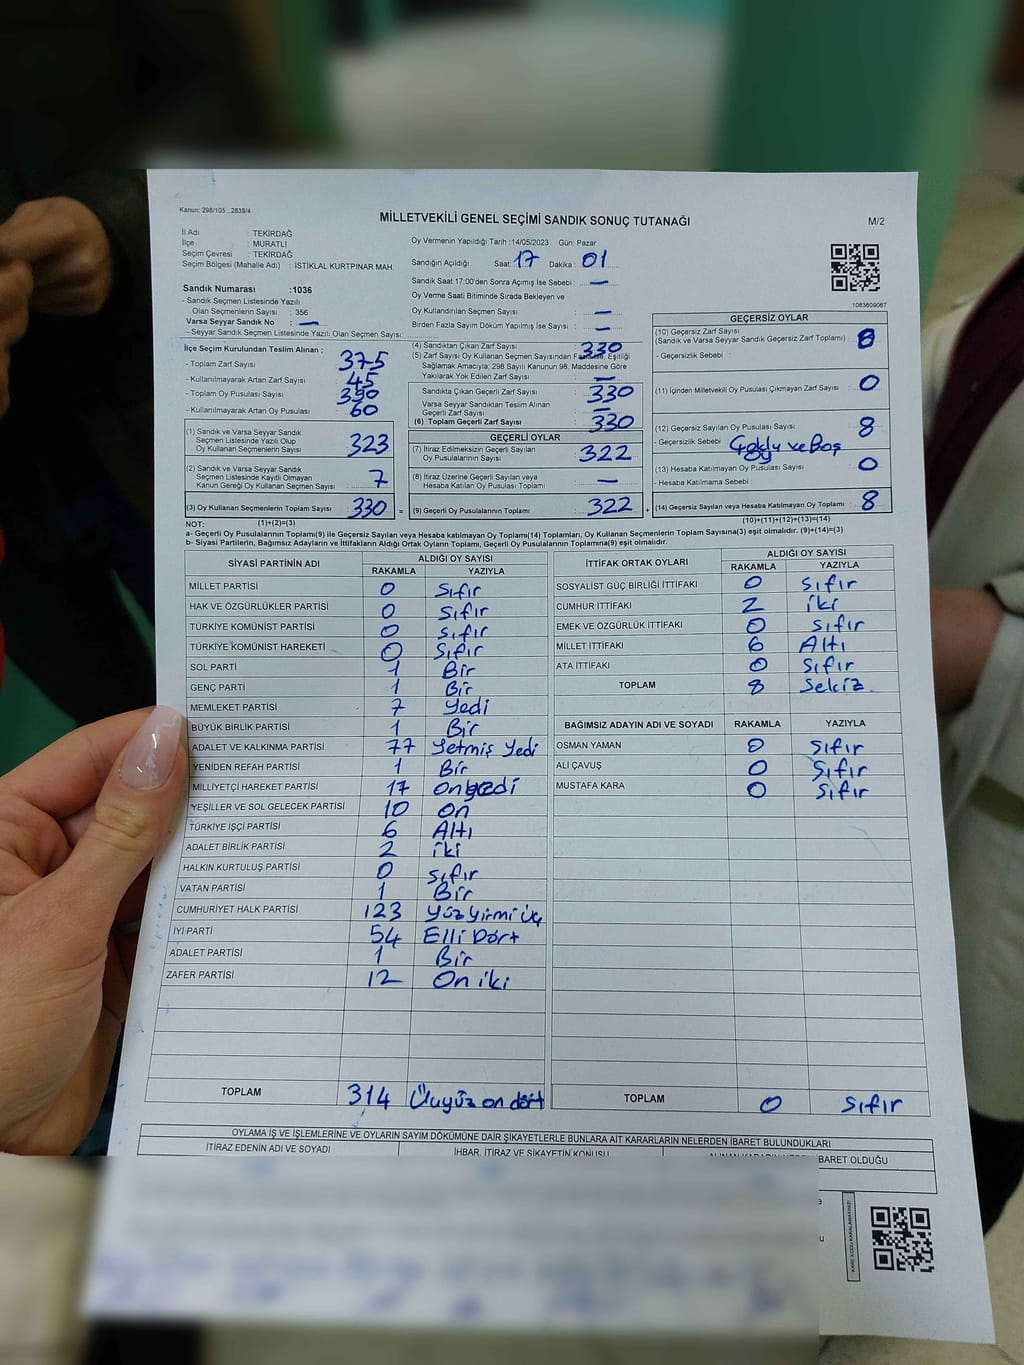 Kanun; 298/105 , 2839/4
MİLLETVEKİLİ GENEL SEÇİMİ SANDIK SONUÇ TUTANAĞI
M/2
İl Adı : TEKİRDAĞ
İlçe : MURATLI
Seçim Çevresi : TEKİRDAĞ
Seçim Bölgesi (Mahalle Adı) : İSTİKLAL KURTPINAR MAH.
Sandık Numarası :1036
- Sandık Seçmen Listesinde Yazılı
Olan Seçmenlerin Sayısı : 356
Varsa Seyyar Sandık No : —
- Seyyar Sandık Seçmen Listesinde Yazılı Olan Seçmen Sayısı:
İlçe Seçim Kurulundan Teslim Alınan ;
- Toplam Zarf Sayısı : 375
- Kullanılmayarak Artan Zarf Sayısı : 45
- Toplam Oy Pusulası Sayısı : 390
- Kullanılmayarak Artan Oy Pusulası : 60
(1) Sandık ve Varsa Seyyar Sandık
Seçmen Listesinde Yazılı Olup
Oy Kullanan Seçmenlerin Sayısı : 323
(2) Sandık ve Varsa Seyyar Sandık
Seçmen Listesinde Kayıtlı Olmayan
Kanun Gereği Oy Kullanan Seçmen Sayısı : 7
(3) Oy Kullanan Seçmenlerin Toplam Sayısı : 330 =
Oy Vermenin Yapıldığı Tarih :14/05/2023 Gün: Pazar
Sandığın Açıldığı Saat: 17 Dakika : 01
Sandık Saat 17:00'den Sonra Açımış İse Sebebi : —
Oy Verme Saati Bitiminde Sırada Bekleyen ve
Oy Kullandırılan Seçmen Sayısı : —
Birden Fazla Sayım Döküm Yapılmış İse Sayısı : —
(4) Sandıktan Çıkan Zarf Sayısı : 330
(5) Zarf Sayısı Oy Kullanan Seçmen Sayısından Fazla ise, Eşitliği
Sağlamak Amacıyla; 298 Sayılı Kanunun 98. Maddesine Göre
Yakılarak Yok Edilen Zarf Sayısı : —
Sandıkta Çıkan Geçerli Zarf Sayısı : 330
Varsa Seyyar Sandıktan Teslim Alınan
Geçerli Zarf Sayısı : —
(6) Toplam Geçerli Zarf Sayısı : 330
GEÇERLİ OYLAR
(7) İtiraz Edilmeksizin Geçerli Sayılan
Oy Pusulalarının Sayısı : 322
(8) İtiraz Üzerine Geçerli Sayılan veya
Hesaba Katılan Oy Pusulası Toplamı : —
(9) Geçerli Oy Pusulalarının Toplamı : 322 +
1083609087
GEÇERSİZ OYLAR
(10) Geçersiz Zarf Sayısı
(Sandık ve Varsa Seyyar Sandık Geçersiz Zarf Toplamı) :
- Geçersizlik Sebebi :
(11) İçinden Milletvekili Oy Pusulası Çıkmayan Zarf Sayısı : 0
(12) Geçersiz Sayılan Oy Pusulası Sayısı : 8
- Geçersizlik Sebebi : Çoklu ve Boş
oy
(13) Hesaba Katılmayan Oy Pusulası Sayısı : 0
- Hesaba Katılmama Sebebi :
(14) Geçersiz Sayılan veya Hesaba Katılmayan Oy Toplamı : 8
NOT: (1)+(2)=(3) (10)+(11)+(12)+(13)=(14)
a- Geçerli Oy Pusulalarının Toplamı(9) ile Geçersiz Sayılan veya Hesaba Katılmayan Oy Toplamı(14) Toplamları, Oy Kullanan Seçmenlerin Toplam Sayısına(3) eşit olmalıdır. (9)+(14)=(3)
b- Siyasi Partilerin, Bağımsız Adayların ve İttifakların Aldığı Ortak Oyların Toplamı, Geçerli Oy Pusulalarının Toplamına(9) eşit olmalıdır.
SİYASİ PARTİNİN ADI ALDIĞI OY SAYISI
RAKAMLA YAZIYLA
MİLLET PARTİSİ 0 Sıfır
HAK VE ÖZGÜRLÜKLER PARTİSİ 0 Sıfır
TÜRKİYE KOMÜNİST PARTİSİ 0 Sıfır
TÜRKİYE KOMÜNİST HAREKETİ 0 Sıfır
SOL PARTİ 1 Bir
GENÇ PARTİ 1 Bir
MEMLEKET PARTİSİ 7 Yedi
BÜYÜK BİRLİK PARTİSİ 1 Bir
ADALET VE KALKINMA PARTİSİ 77 Yetmiş Yedi
YENİDEN REFAH PARTİSİ 1 Bir
MİLLİYETÇİ HAREKET PARTİSİ 17 Onyedi
YEŞİLLER VE SOL GELECEK PARTİSİ 10 On
TÜRKİYE İŞÇİ PARTİSİ 6 Altı
ADALET BİRLİK PARTİSİ 2 iki
HALKIN KURTULUŞ PARTİSİ 0 sıfır
VATAN PARTİSİ 1 Bir
CUMHURİYET HALK PARTİSİ 123 Yüz yirmi üç
İYİ PARTİ 54 Elli Dört
ADALET PARTİSİ 1 Bir
ZAFER PARTİSİ 12 On iki
TOPLAM 314 Üçyüz on dört
İTTİFAK ORTAK OYLARI ALDIĞI OY SAYISI
RAKAMLA YAZIYLA
SOSYALİST GÜÇ BİRLİĞİ İTTİFAKI 0 Sıfır
CUMHUR İTTİFAKI 2 iki
EMEK VE ÖZGÜRLÜK İTTİFAKI 0 Sıfır
MİLLET İTTİFAKI 6 Altı
ATA İTTİFAKI 0 Sıfır
TOPLAM 8 Sekiz
BAĞIMSIZ ADAYIN ADI VE SOYADI RAKAMLA YAZIYLA
OSMAN YAMAN 0 Sıfır
ALİ ÇAVUŞ 0 Sıfır
MUSTAFA KARA 0 Sıfır
TOPLAM 0 Sıfır
OYLAMA İŞ VE İŞLEMLERİNE VE OYLARIN SAYIM DÖKÜMÜNE DAİR ŞİKAYETLERLE BUNLARA AİT KARARLARIN NELERDEN İBARET BULUNDUKLARI
İTİRAZ EDENİN ADI VE SOYADI İHBAR, İTİRAZ VE ŞİKAYETİN KONUSU İBARET OLDUĞU